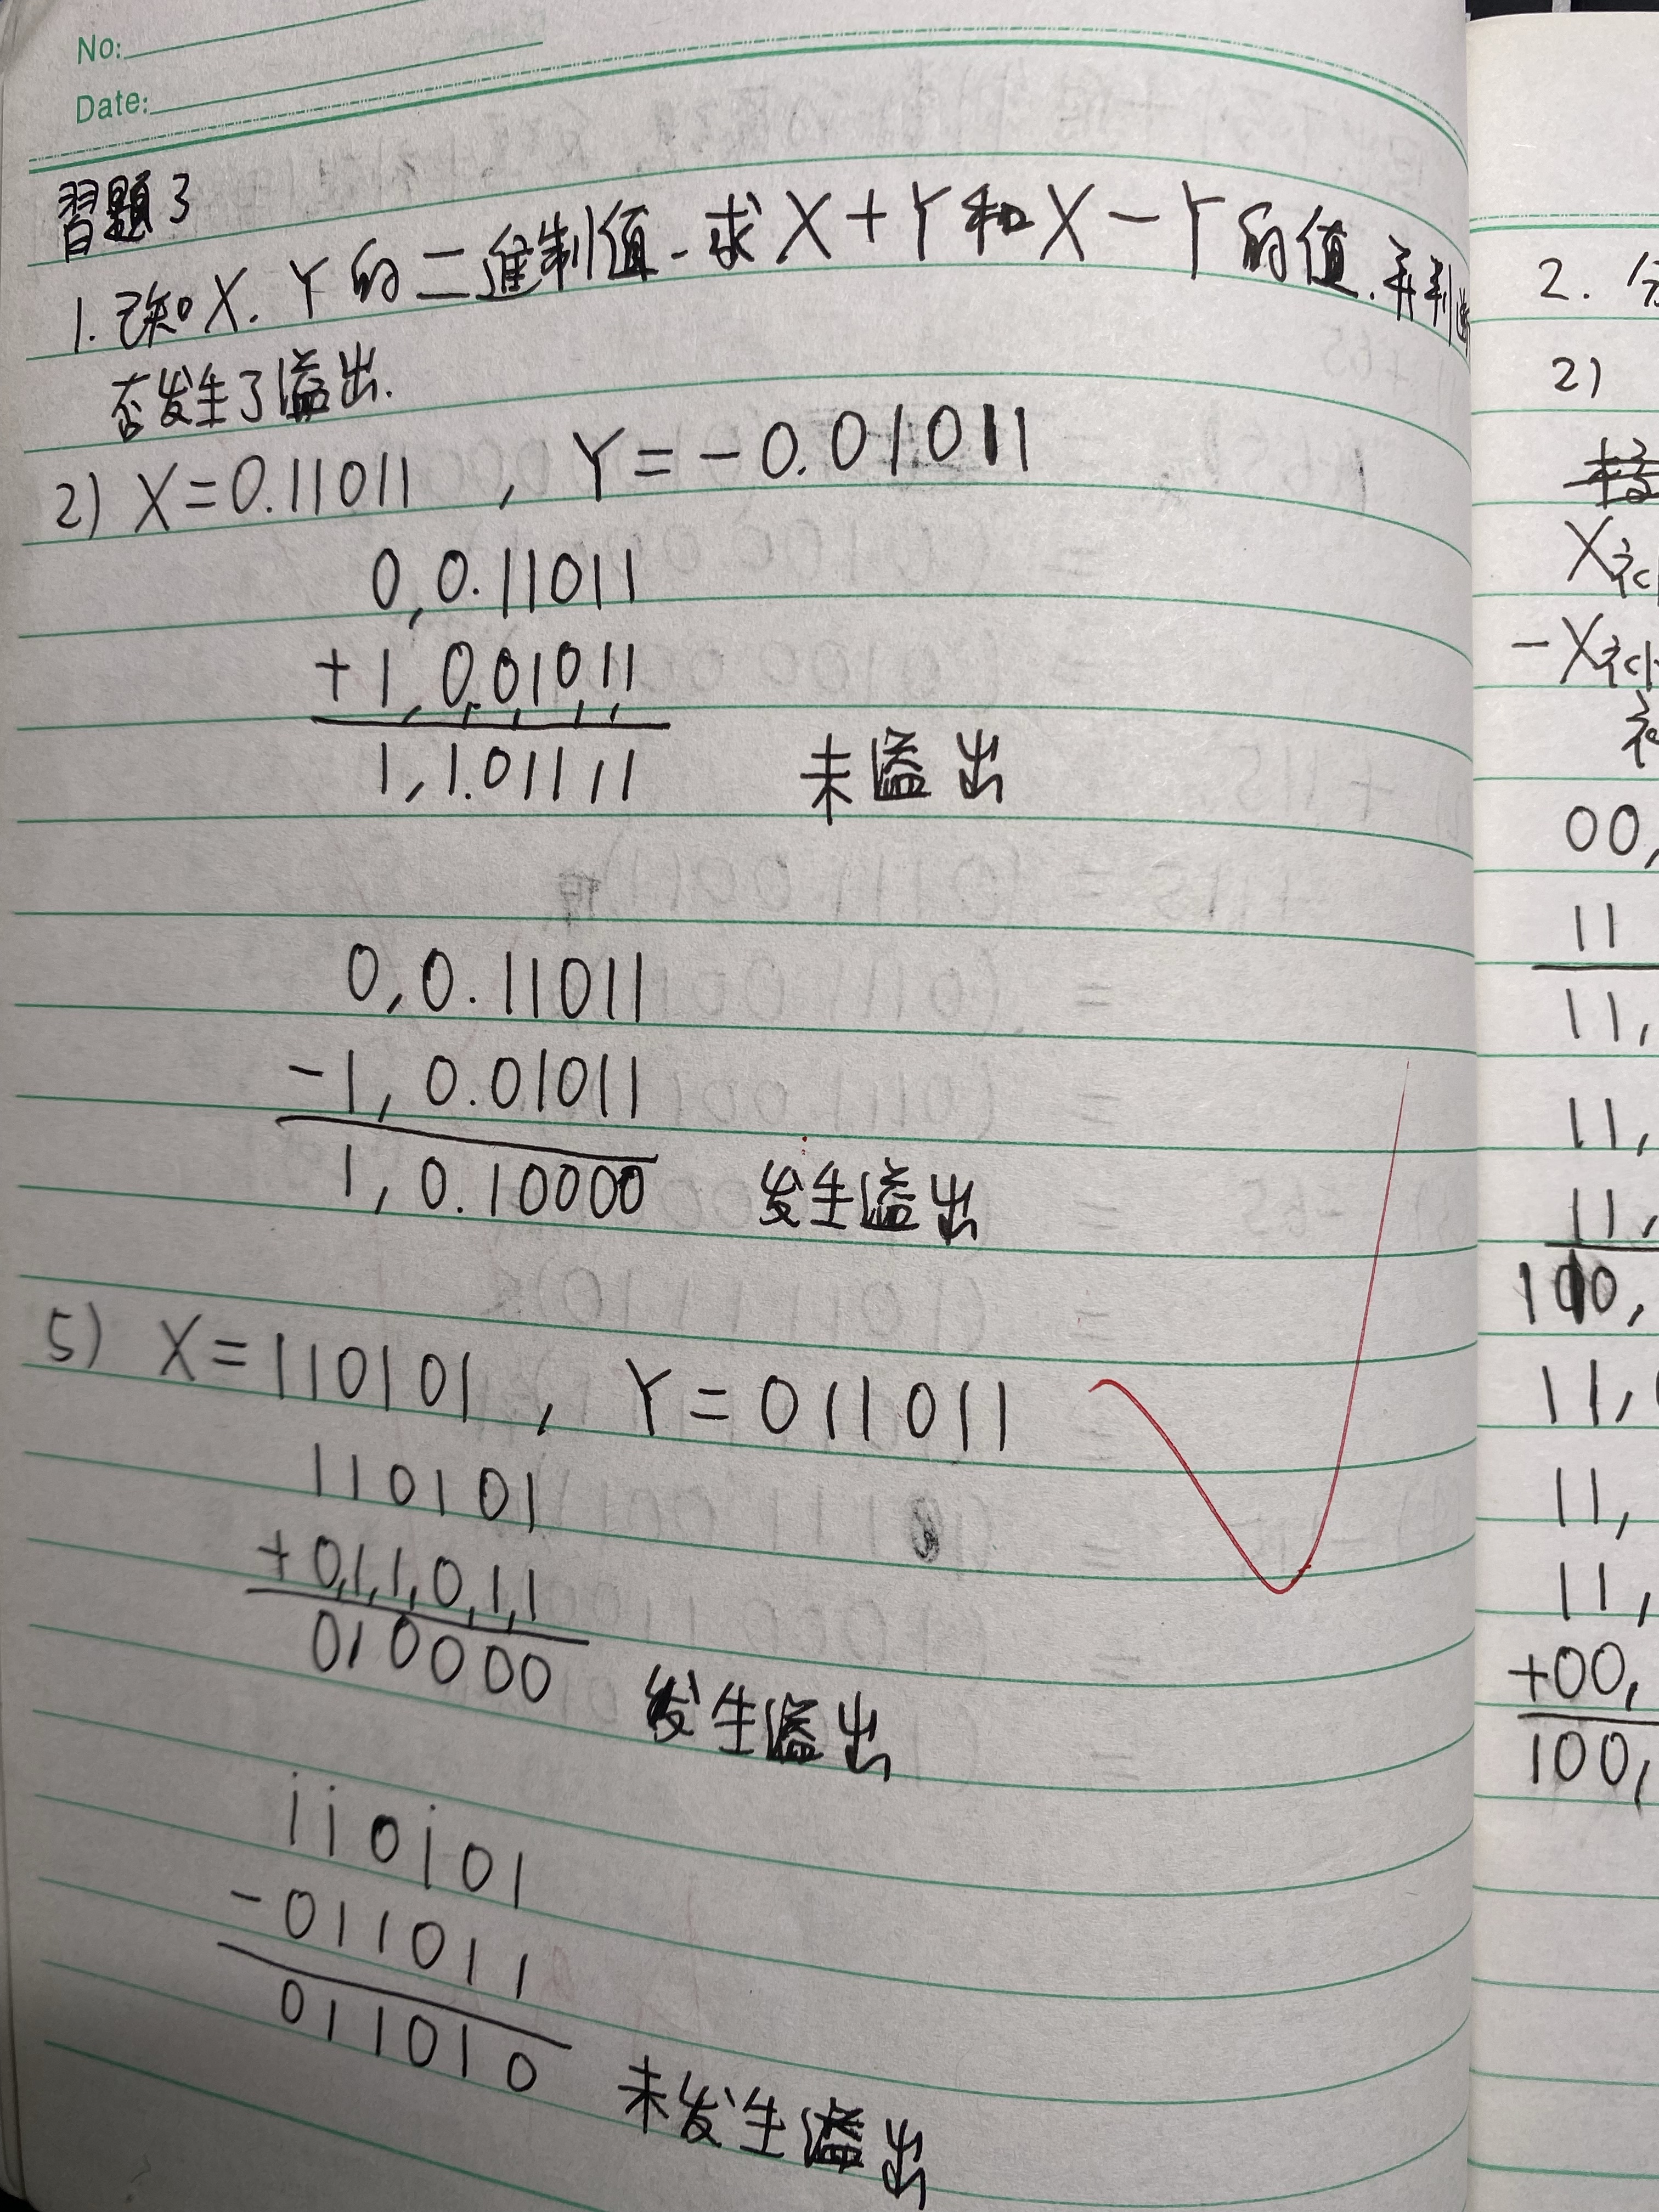 No:
Date:
習題3
1. 已知X. Y的二進制值. 求X+Y和X-Y的值. 并判断
否发生了溢出.
2) X=0.11011 , Y=-0.01011
0,0.11011
+1,0.01011
1,1.01111 未溢出
0,0.11011
-1,0.01011
1,0.10000 发生溢出
5) X=110101 , Y=011011
110101
+011011
010000 发生溢出
110101
-011011
011010 未发生溢出
2. 分
2)
X补
-X补
00,
11
11,
11,
11,
100,
11,
11,
11,
+00,
100,